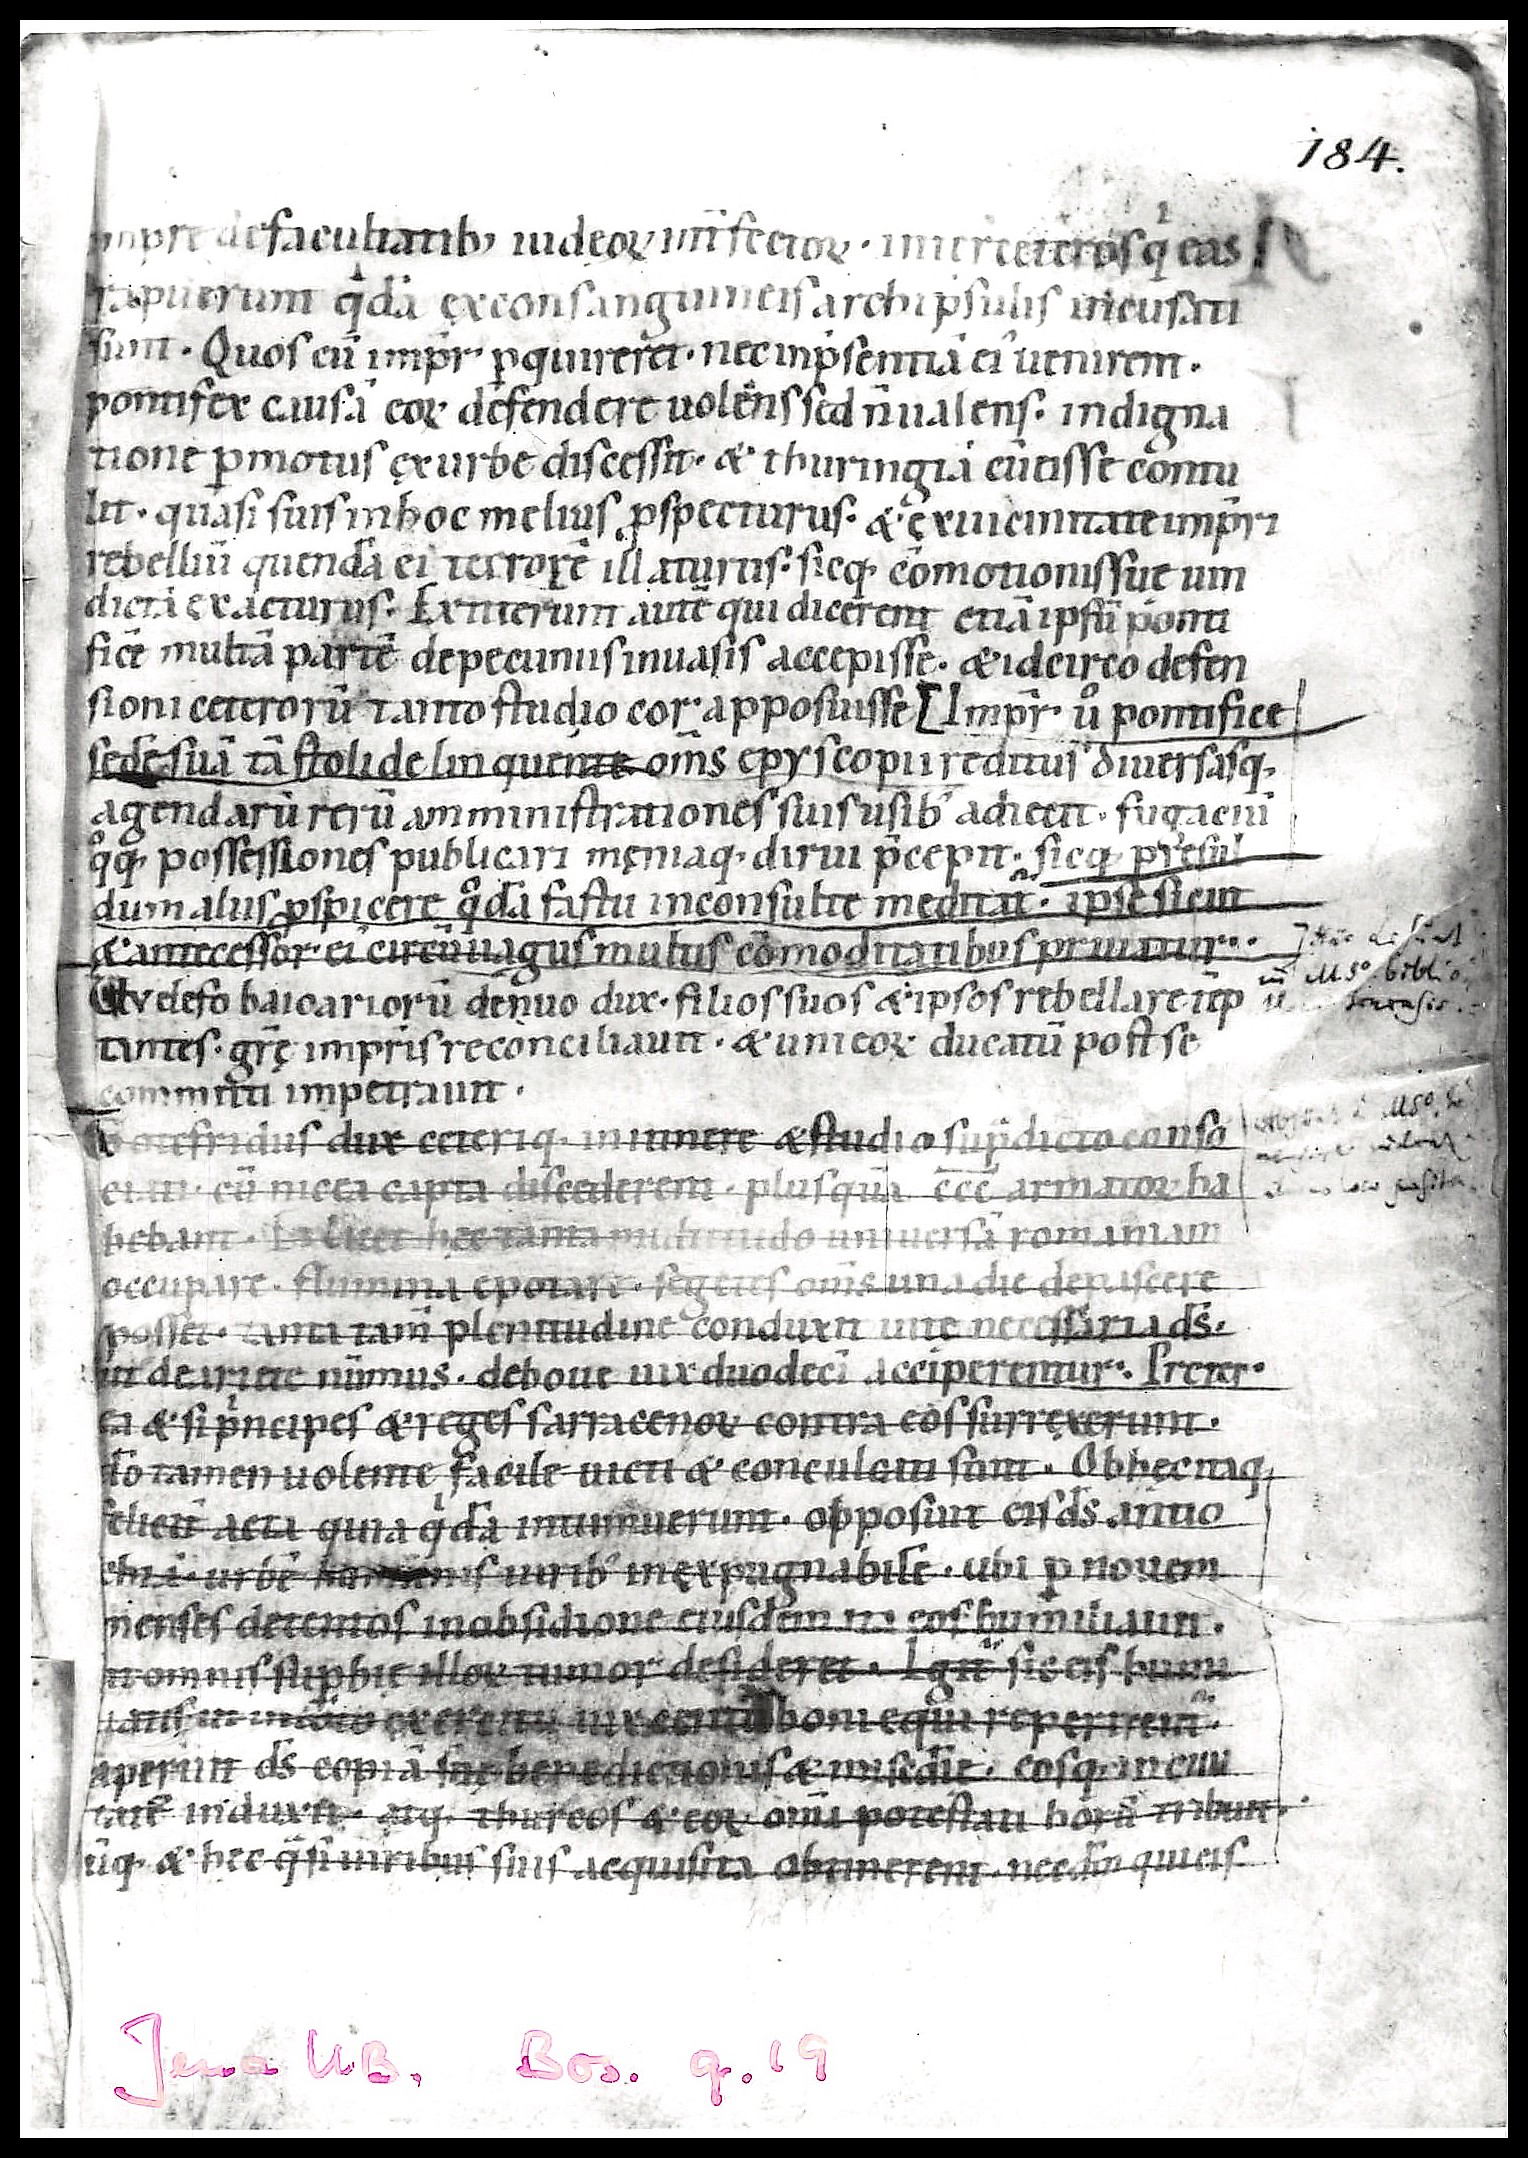 184.
impr̄ de facultatib; iudeor̨ int̄fector̨ · inter ceteros q̍ eas
rapuerunt q̍dā ex consanguineis archip̄sulis incusati
sunt · Quos cū imp̄r · p̱quireret · nec in p̄sentiā ei᷒ uenirent ·
pontifex causā eor̨ defendere uolens sed n̄ ualens · indigna
tione p̱motus ex urbe discessit · & thuringiā eū eisse contu
lit · quasi suis in hoc melius ꝓspecturus · & ex uicinitate imp̄ri
rebelliū quendā ei terrorē illaturus · sicq; cōmotionis suę uin
dictā exacturus · Extiterunt autē qui dicerent etiā ipsū ponti
ficē multā partē de pecuniis inuasis accepisse · & idcirco defen
sioni ceterorū tanto studio cor apposuisse [ Imp̄r · ů pontifice
sedē suā tā stolide linquente om̄s epyscopii reditus diuersasq;
agendarū rerū amministrationes suis usib᷒ adiecit · fugaciū
q̊q; possessiones publicari męniaq; dirui p̄cepit · sicq; presul
dum aliis ꝓspicere q̊dā fastu inconsulte meditat᷑ · ipse sicut
& antecessor ei᷒ circūuagus multis cōmoditatibus priuatur ·
Welefo baioariorū denuo dux · filios suos & ipsos rebellare tēp
tantes · gr̄ę imp̄ris reconciliauit · & uni eor̨ ducatū post se
committi impetrauit ·
Gotefridus dux ceteriq; in itinere & studio sup̄dicto conso
ciati · cū nicea capta discederent · plusquā ccc armator̨ ha
bebant · Et licet hęc tanta multitudo uniuersā romaniam
occupare · flumina epotare · segetes om̄s una die depascere
posset · tanta tam̄ plenitudine conduxit uite necessaria ds̄ ·
ut de ariete nūmus · de boue uix duodecī acciperentur · Preter
ea & si p̍ncipes & reges sarracenor̨ contra eos surrexerunt ·
dō tamen uolente facile uicti & conculcati sunt · Ob hęc itaq;
feliciť acta quia q̍dā intumuerunt · opposuit eis ds̄ antio
chiā · urbē humanis uirib᷒ inexpugnabilē · ubi p̱ novem
menses detentos in obsidione eiusdem ita eos humiliauit ·
ut omnis sup̱bię illor̨ tumor desideret · Igit᷑ sic eis humi
liatis ut in toto exercitu uix centū boni equi reperirent᷑ ·
aperuit ds̄ copiā suę benedictionis & mis̄dię · eosq; in ciui
tatē induxit · atq; thurcos & eor̨ om̄ia potestati horū tribuit ·
cūq; & hęc q̄si uiribus suis acquisita obtinerent · nec dm̄ qui eis
Jena UB. Bos. q. 19